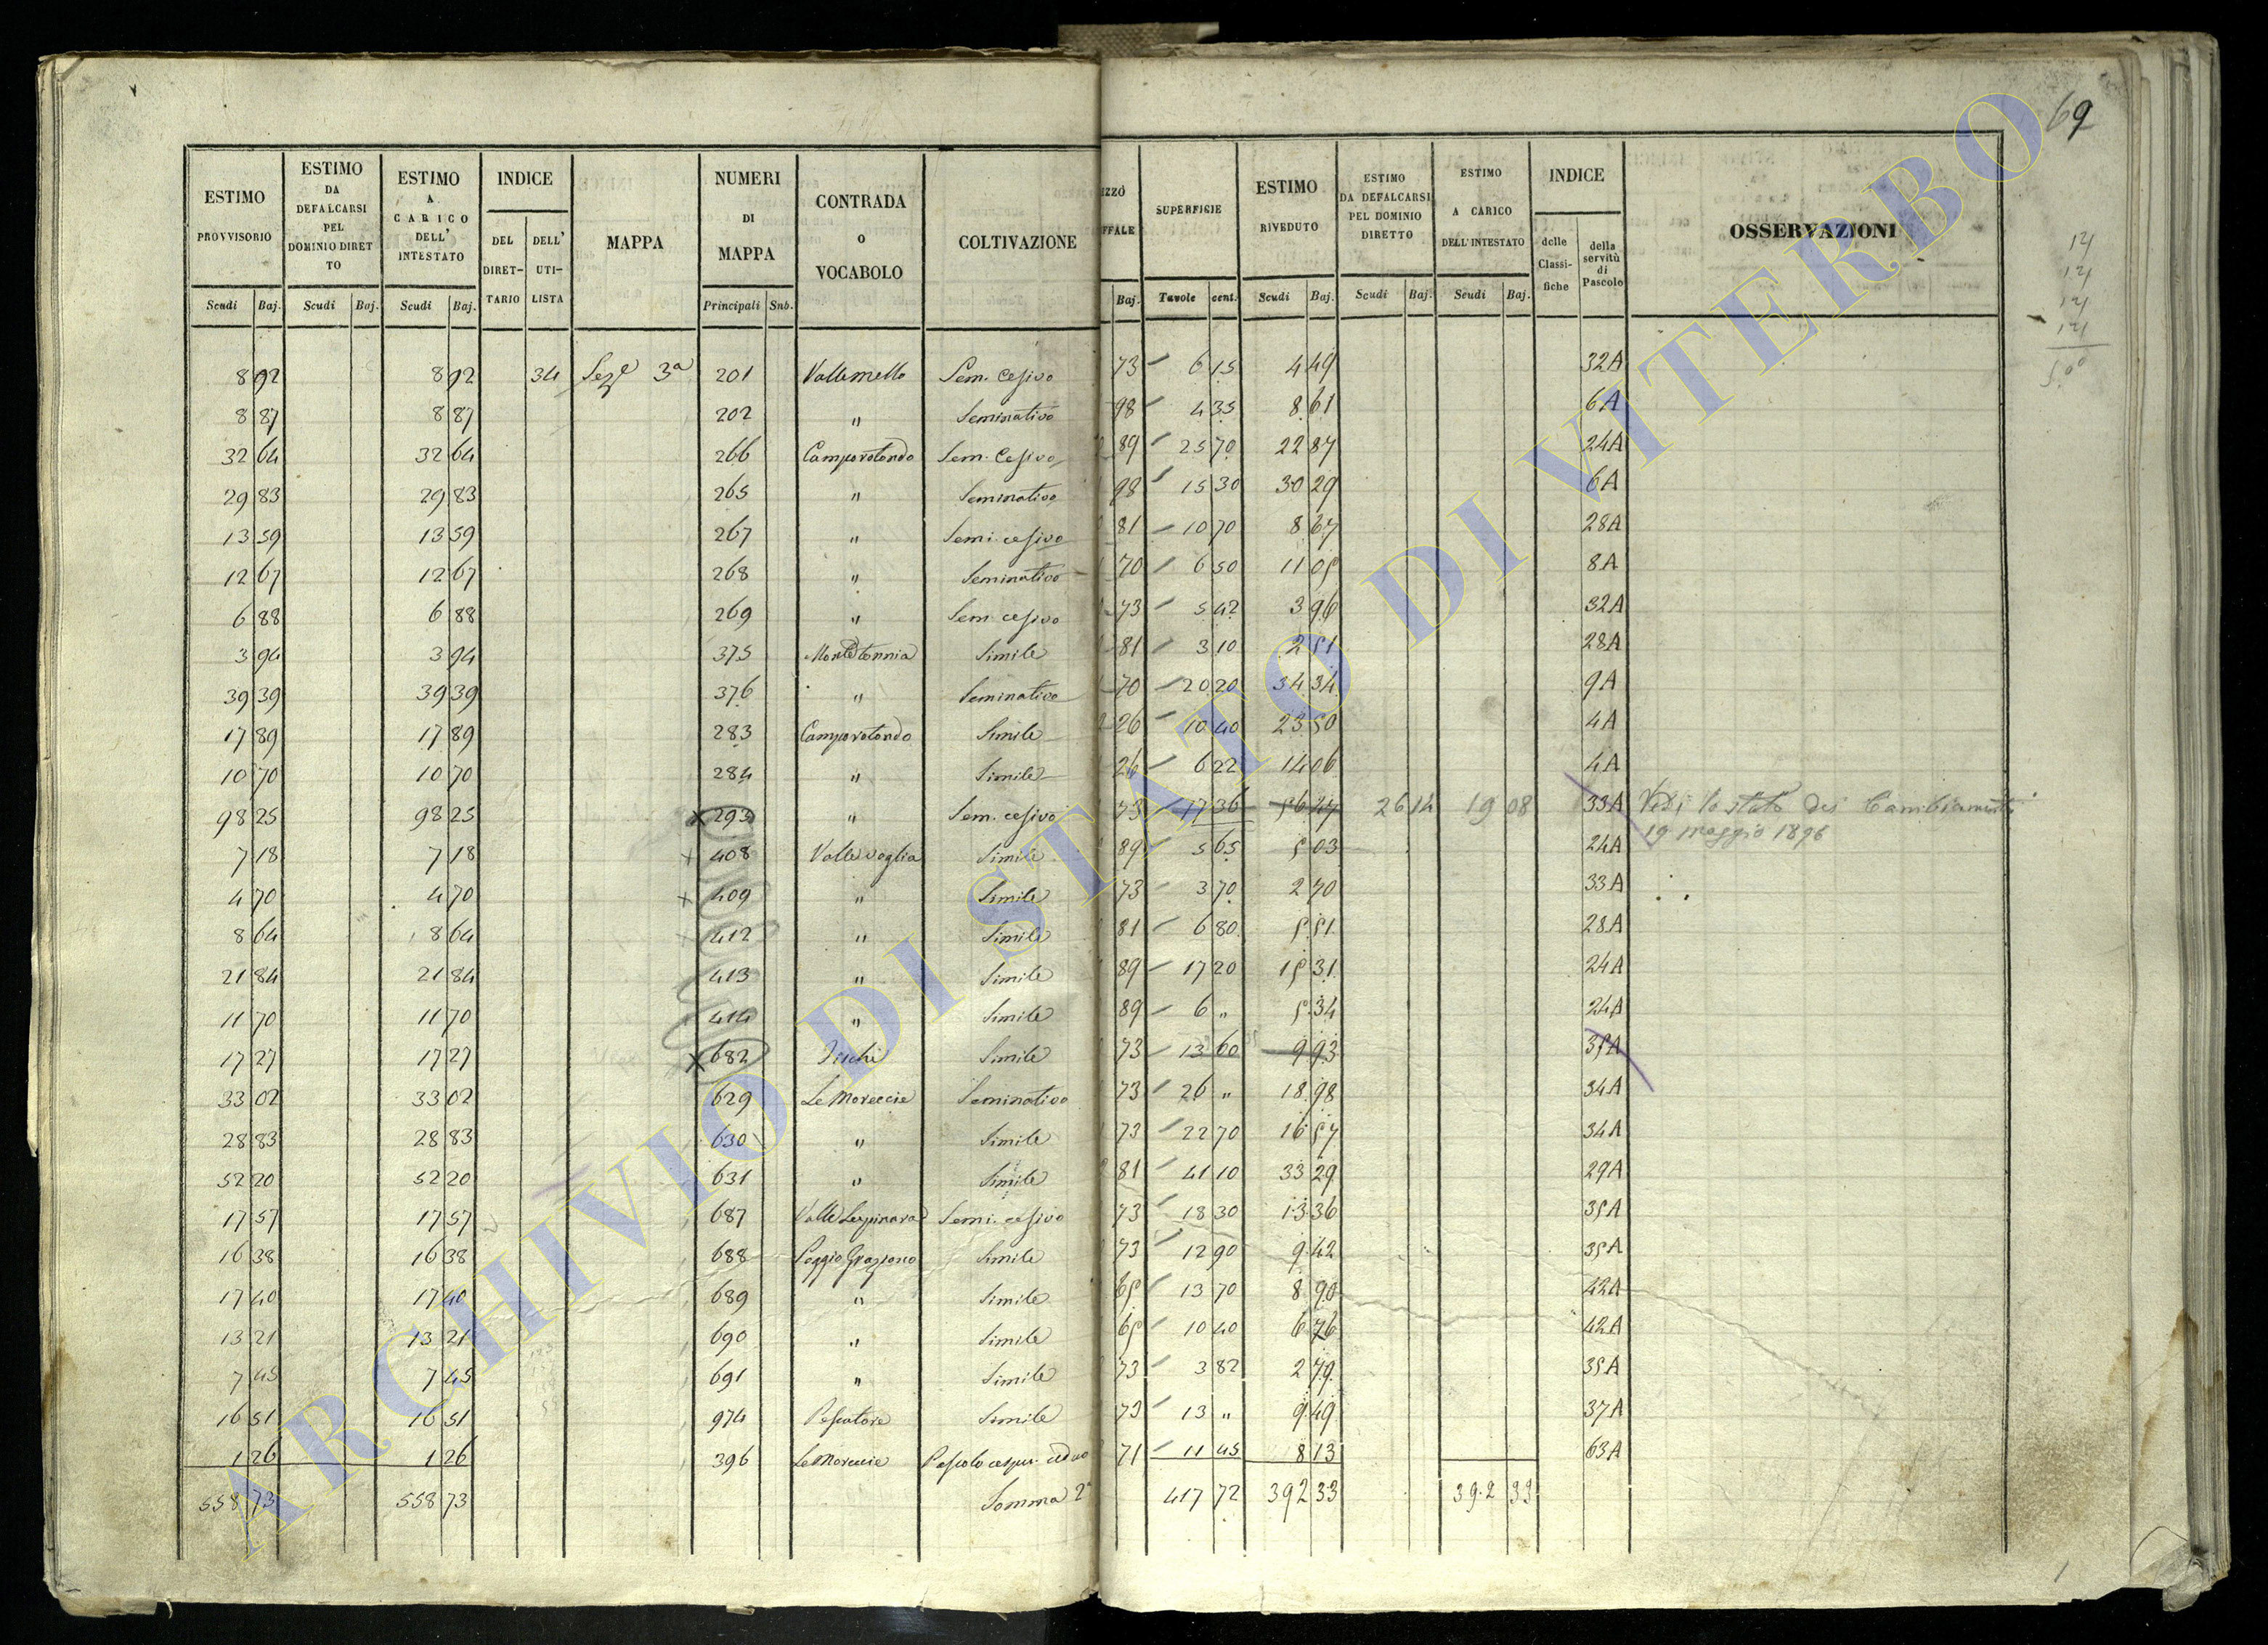 69
ESTIMO PROVVISORIO | ESTIMO DA DEFALCARSI PEL DOMINIO DIRETTO | ESTIMO A CARICO DELL' INTESTATO | INDICE | MAPPA | NUMERI DI MAPPA | CONTRADA O VOCABOLO | COLTIVAZIONE | IZZO FFALE | SUPERFICIE | ESTIMO RIVEDUTO | ESTIMO DA DEFALCARSI PEL DOMINIO DIRETTO | ESTIMO A CARICO DELL'INTESTATO | INDICE | OSSERVAZIONI
DEL DIRETTARIO | DELL' UTILISTA | delle Classifiche | della servitù di Pascolo
Scudi | Baj. | Scudi | Baj. | Scudi | Baj. | Principali | Snb. | Baj. | Tavole | cent. | Scudi | Baj. | Scudi | Baj. | Scudi | Baj.
8 92 | 8 92 | 34 | Seze 3a | 201 | Vallemello | Sem. Cesivo | 73 | 6 15 | 4 49 | 32A
8 87 | 8 87 | 202 | " | Seminativo | 98 | 4 35 | 8 61 | 6A
32 64 | 32 64 | 266 | Camporotondo | Sem. Cesivo | 89 | 25 70 | 22 87 | 24A
29 83 | 29 83 | 265 | " | Seminativo | 98 | 15 30 | 30 29 | 6A
13 59 | 13 59 | 267 | " | Semi. cesivo | 81 | 10 70 | 8 67 | 28A
12 67 | 12 67 | 268 | " | Seminativo | 70 | 6 50 | 11 05 | 8A
6 88 | 6 88 | 269 | " | Sem cesivo | 73 | 5 42 | 3 96 | 32A
3 94 | 3 94 | 375 | Simile | 81 | 3 10 | 2 51 | 28A
39 39 | 39 39 | 376 | " | Seminativo | 70 | 20 20 | 34 34 | 9A
17 89 | 17 89 | 283 | Camporotondo | Simile | 26 | 10 40 | 23 50 | 4A
10 70 | 10 70 | 284 | " | Simile | 26 | 6 22 | 14 06 | 4A
98 25 | 98 25 | x 293 | " | Sem. cesivo | 73 | 26 14 | 19 08 | 33A | Vedi lo stato dei Cambiamenti
19 maggio 1896
7 18 | 7 18 | x 408 | Vallevoglia | Simile | 89 | 5 65 | 5 03 | 24A
4 70 | 4 70 | x 409 | " | Simile | 73 | 3 70 | 2 70 | 33A
8 64 | 8 64 | x 412 | " | Simile | 81 | 6 80 | 5 51 | 28A
21 84 | 21 84 | 413 | " | Simile | 89 | 17 20 | 15 31 | 24A
11 70 | 11 70 | 414 | " | Simile | 89 | 6 " | 5 34 | 24A
17 27 | 17 27 | x 682 | Simile | 73 | 13 60 | 9 93 | 35A
33 02 | 33 02 | 629 | Le Moreccie | Seminativo | 73 | 26 " | 18 98 | 34A
28 83 | 28 83 | 630 | " | Simile | 73 | 22 70 | 16 57 | 34A
52 20 | 52 20 | 631 | " | Simile | 81 | 41 10 | 33 29 | 29A
17 57 | 17 57 | 687 | Semi. cesivo | 73 | 18 30 | 13 36 | 35A
16 38 | 16 38 | 688 | Poggio Graziano | Simile | 73 | 12 90 | 9 42 | 35A
17 40 | 17 40 | 689 | " | Simile | 65 | 13 70 | 8 90 | 42A
13 21 | 13 21 | 690 | " | Simile | 65 | 10 40 | 6 76 | 42A
7 45 | 7 45 | 691 | " | Simile | 73 | 3 82 | 2 79 | 35A
16 51 | 16 51 | 974 | Pescatore | Simile | 73 | 13 " | 9 49 | 37A
1 26 | 1 26 | 396 | Le Moreccie | 71 | 11 45 | 8 13 | 63A
558 73 | 558 73 | Somma 2a | 417 72 | 392 33 | 392 33
ARCHIVIO DI STATO DI VITERBO